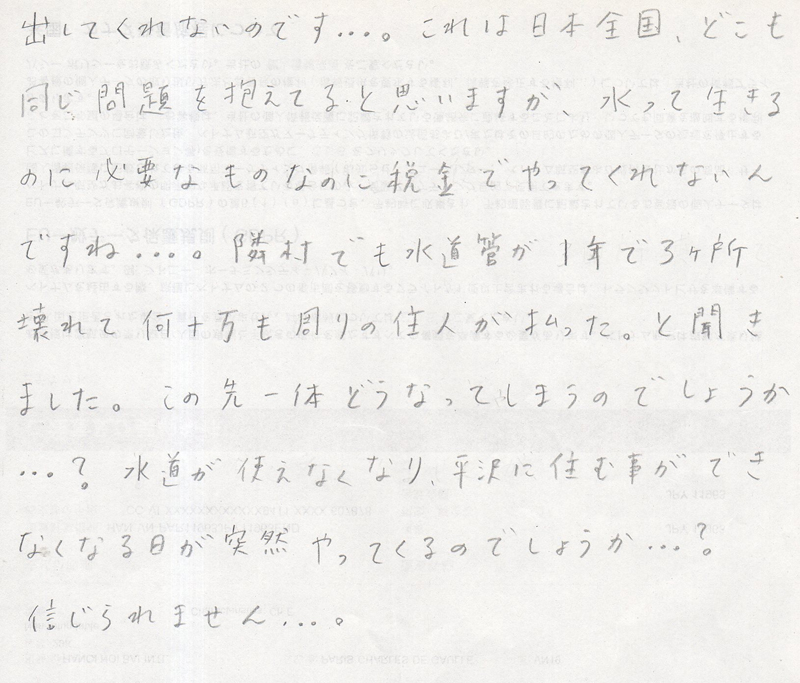 出してくれないのです...。これは日本全国、どこも
同じ問題を抱えてると思いますが、水って生きる
のに必要なものなのに税金でやってくれないん
ですね....。隣村でも水道管が1年で3ヶ所
壊れて何十万も周りの住人が払った。と聞き
ました。この先一体どうなってしまうのでしょうか
...?水道が使えなくなり、平沢に住む事ができ
なくなる日が突然やってくるのでしょうか...?
信じられません...。